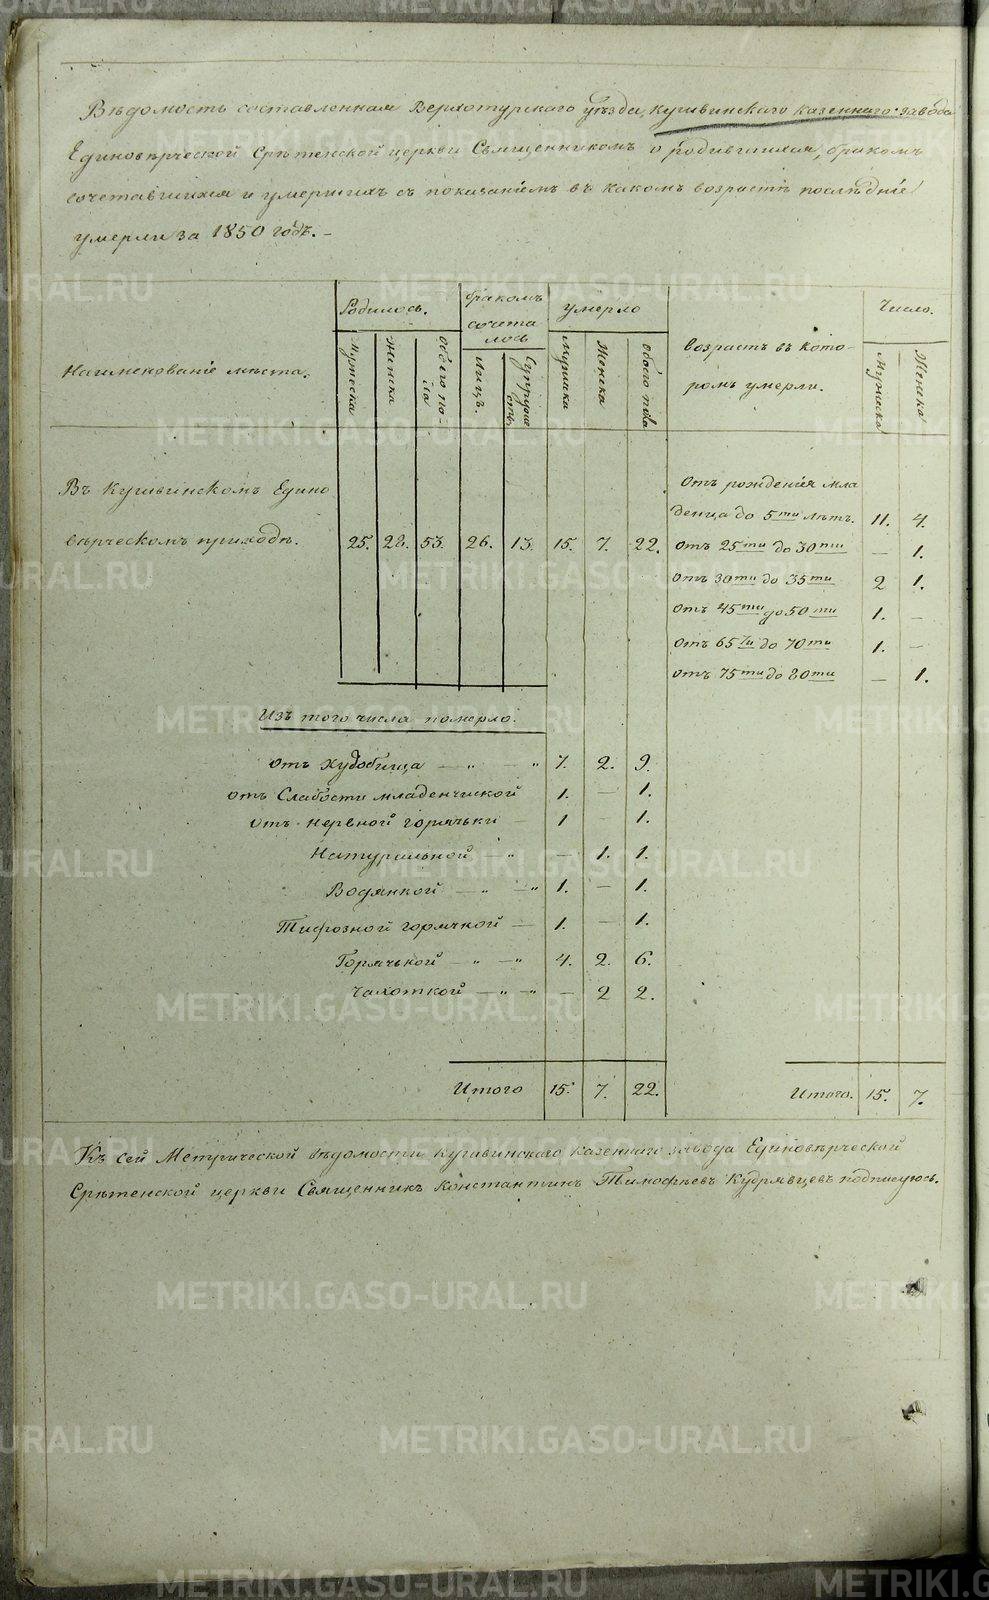 Вѣдомость составленная Верхотурскаго уѣзда, Кушвинскаго казеннаго завода
Единовѣрческой Срѣтенской церкви Священникомъ о родившихся, бракомъ
сочетавшихся и умершихъ съ показаніемъ въ какомъ возрастѣ послѣдніе
умерли за 1850 годъ. –
Наименованіе мѣста.
Родилось.
Мужеска
Женска
Обоего по-
ла
бракомъ
сочета
лось
Лицъ.
Супруже
ствъ
умерло
Мужска
Женска
обоего пола
возрастъ въ кото-
ромъ умерли.
Число.
Мужеска
Женска
Въ Кушвинскомъ Едино
вѣрческомъ приходѣ. 25. 28. 53. 26. 13. 15. 7. 22.
Отъ рожденія мла
денца до 5ти лѣтъ. 11. 4.
отъ 25ти до 30ти — 1.
отъ 30ти до 35ти 2 1.
отъ 45ти до 50ти 1. –
отъ 65ти до 70ти 1. –
отъ 75ти до 80ти — 1.
Изъ того числа померло.
отъ Худобища — „ — „ 7. 2. 9.
отъ Слабости младенчиской 1. — 1.
отъ нервной горячьки — 1 – 1.
Натуральной – „ — 1. 1.
Водянкой — „ — „ 1. – 1.
Тифозной горячкой — 1. – 1.
Горячькой — „ — „ 4. 2. 6.
Чахоткой — „ — „ – 2 2.
Итого 15. 7. 22.
Итого. 15. 7.
Къ сей Метрической вѣдомости Кушвинскаго казеннаго завода Единовѣрческой
Срѣтенской церкви Священникъ Константинъ Тимофѣевъ Кудрявцевъ подписуюсь.
METRIKI.GASO-URAL.RU